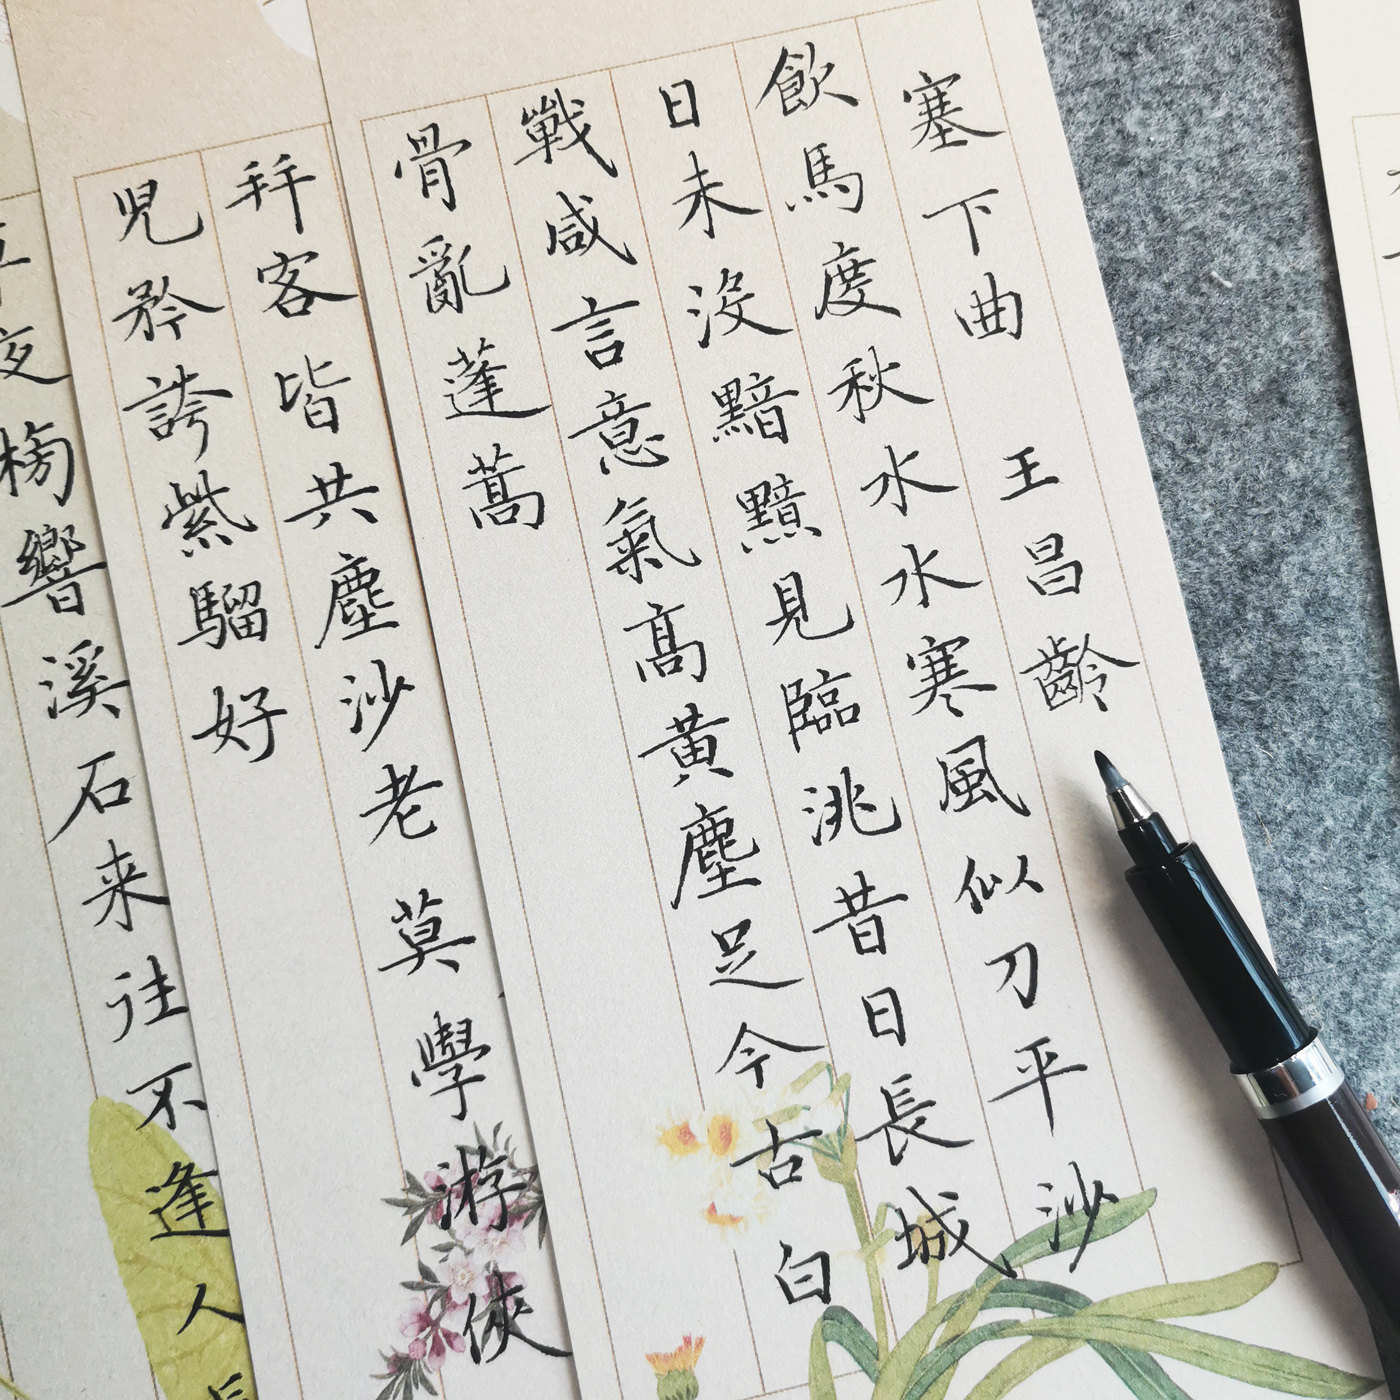 塞下曲 王昌齡
飲馬度秋水水寒風似刀平沙
日未沒黯黯見臨洮昔日長城
戰咸言意氣高黃塵足今古白
骨亂蓬蒿
拜客皆共塵沙老莫學游俠
兒矜誇紫騮好
夜榜響溪石来往不逢人